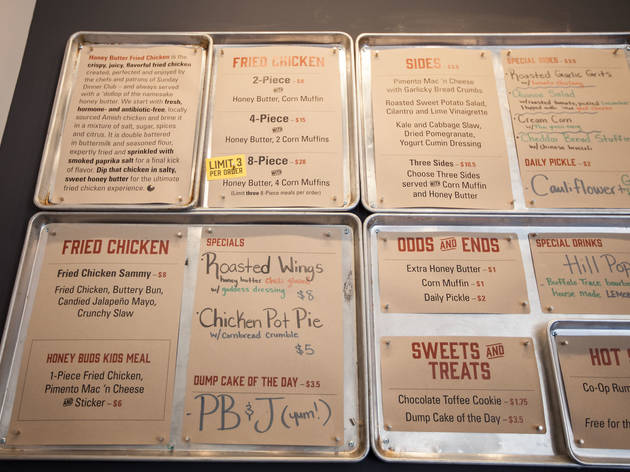 Honey Butter Fried Chicken is the
crispy, juicy, flavorful fried chicken
created, perfected and enjoyed by
the chefs and patrons of Sunday
Dinner Club – and always served
with a 'dollop of the namesake
honey butter. We start with fresh,
hormone- and antibiotic-free, locally
sourced Amish chicken and brew it
in a mixture of salt, sugar, spices
and citrus. It is double battered
in buttermilk and seasoned flour,
expertly fried and sprinkled with
smoked paprika salt for a final kick
of flavor. Dip that chicken in salty,
sweet honey butter for the ultimate
fried chicken experience.
FRIED CHICKEN
2-Piece – $8
WITH
Honey Butter, Corn Muffin
4-Piece – $15
WITH
Honey Butter, 2 Corn Muffins
LIMIT 3
PER ORDER
8-Piece – $28
WITH
Honey Butter, 4 Corn Muffins
(Limit three 8-Piece meals per order)
SIDES
Pimento Mac 'n Cheese
with Garlicky Bread Crumbs
Roasted Sweet Potato Salad,
Cilantro and Lime Vinaigrette
Kale and Cabbage Slaw,
Dried Pomegranate,
Yogurt Cumin Dressing
Three Sides – $10.5
Choose Three Sides
served WITH Corn Muffin
and Honey Butter
SPECIAL SIDES
Roasted Garlic Grits
Cheese Salad
Cream Corn
Cheddar Bread Stuffin
w/chinese broccoli
DAILY PICKLE – $2
Cauliflower
FRIED CHICKEN
Fried Chicken Sammy – $8
Fried Chicken, Buttery Bun,
Candied Jalapeño Mayo,
Crunchy Slaw
HONEY BUDS KIDS MEAL
1-Piece Fried Chicken,
Pimento Mac 'n Cheese
AND Sticker – $6
SPECIALS
Roasted Wings
honey butter chili glaze
w/ goddess dressing $8
Chicken Pot Pie
w/cornbread crumble
$5
DUMP CAKE OF THE DAY – $3.5
- PB & J (yum!)
ODDS AND ENDS
Extra Honey Butter – $1
Corn Muffin – $1
Daily Pickle – $2
SWEETS AND
TREATS
Chocolate Toffee Cookie – $1.75
Dump Cake of the Day – $3.5
SPECIAL DRINKS
Hill Pop
- Buffalo Trace bourbon
house made LEMON
HOT
Co-Op Rum
Free for th